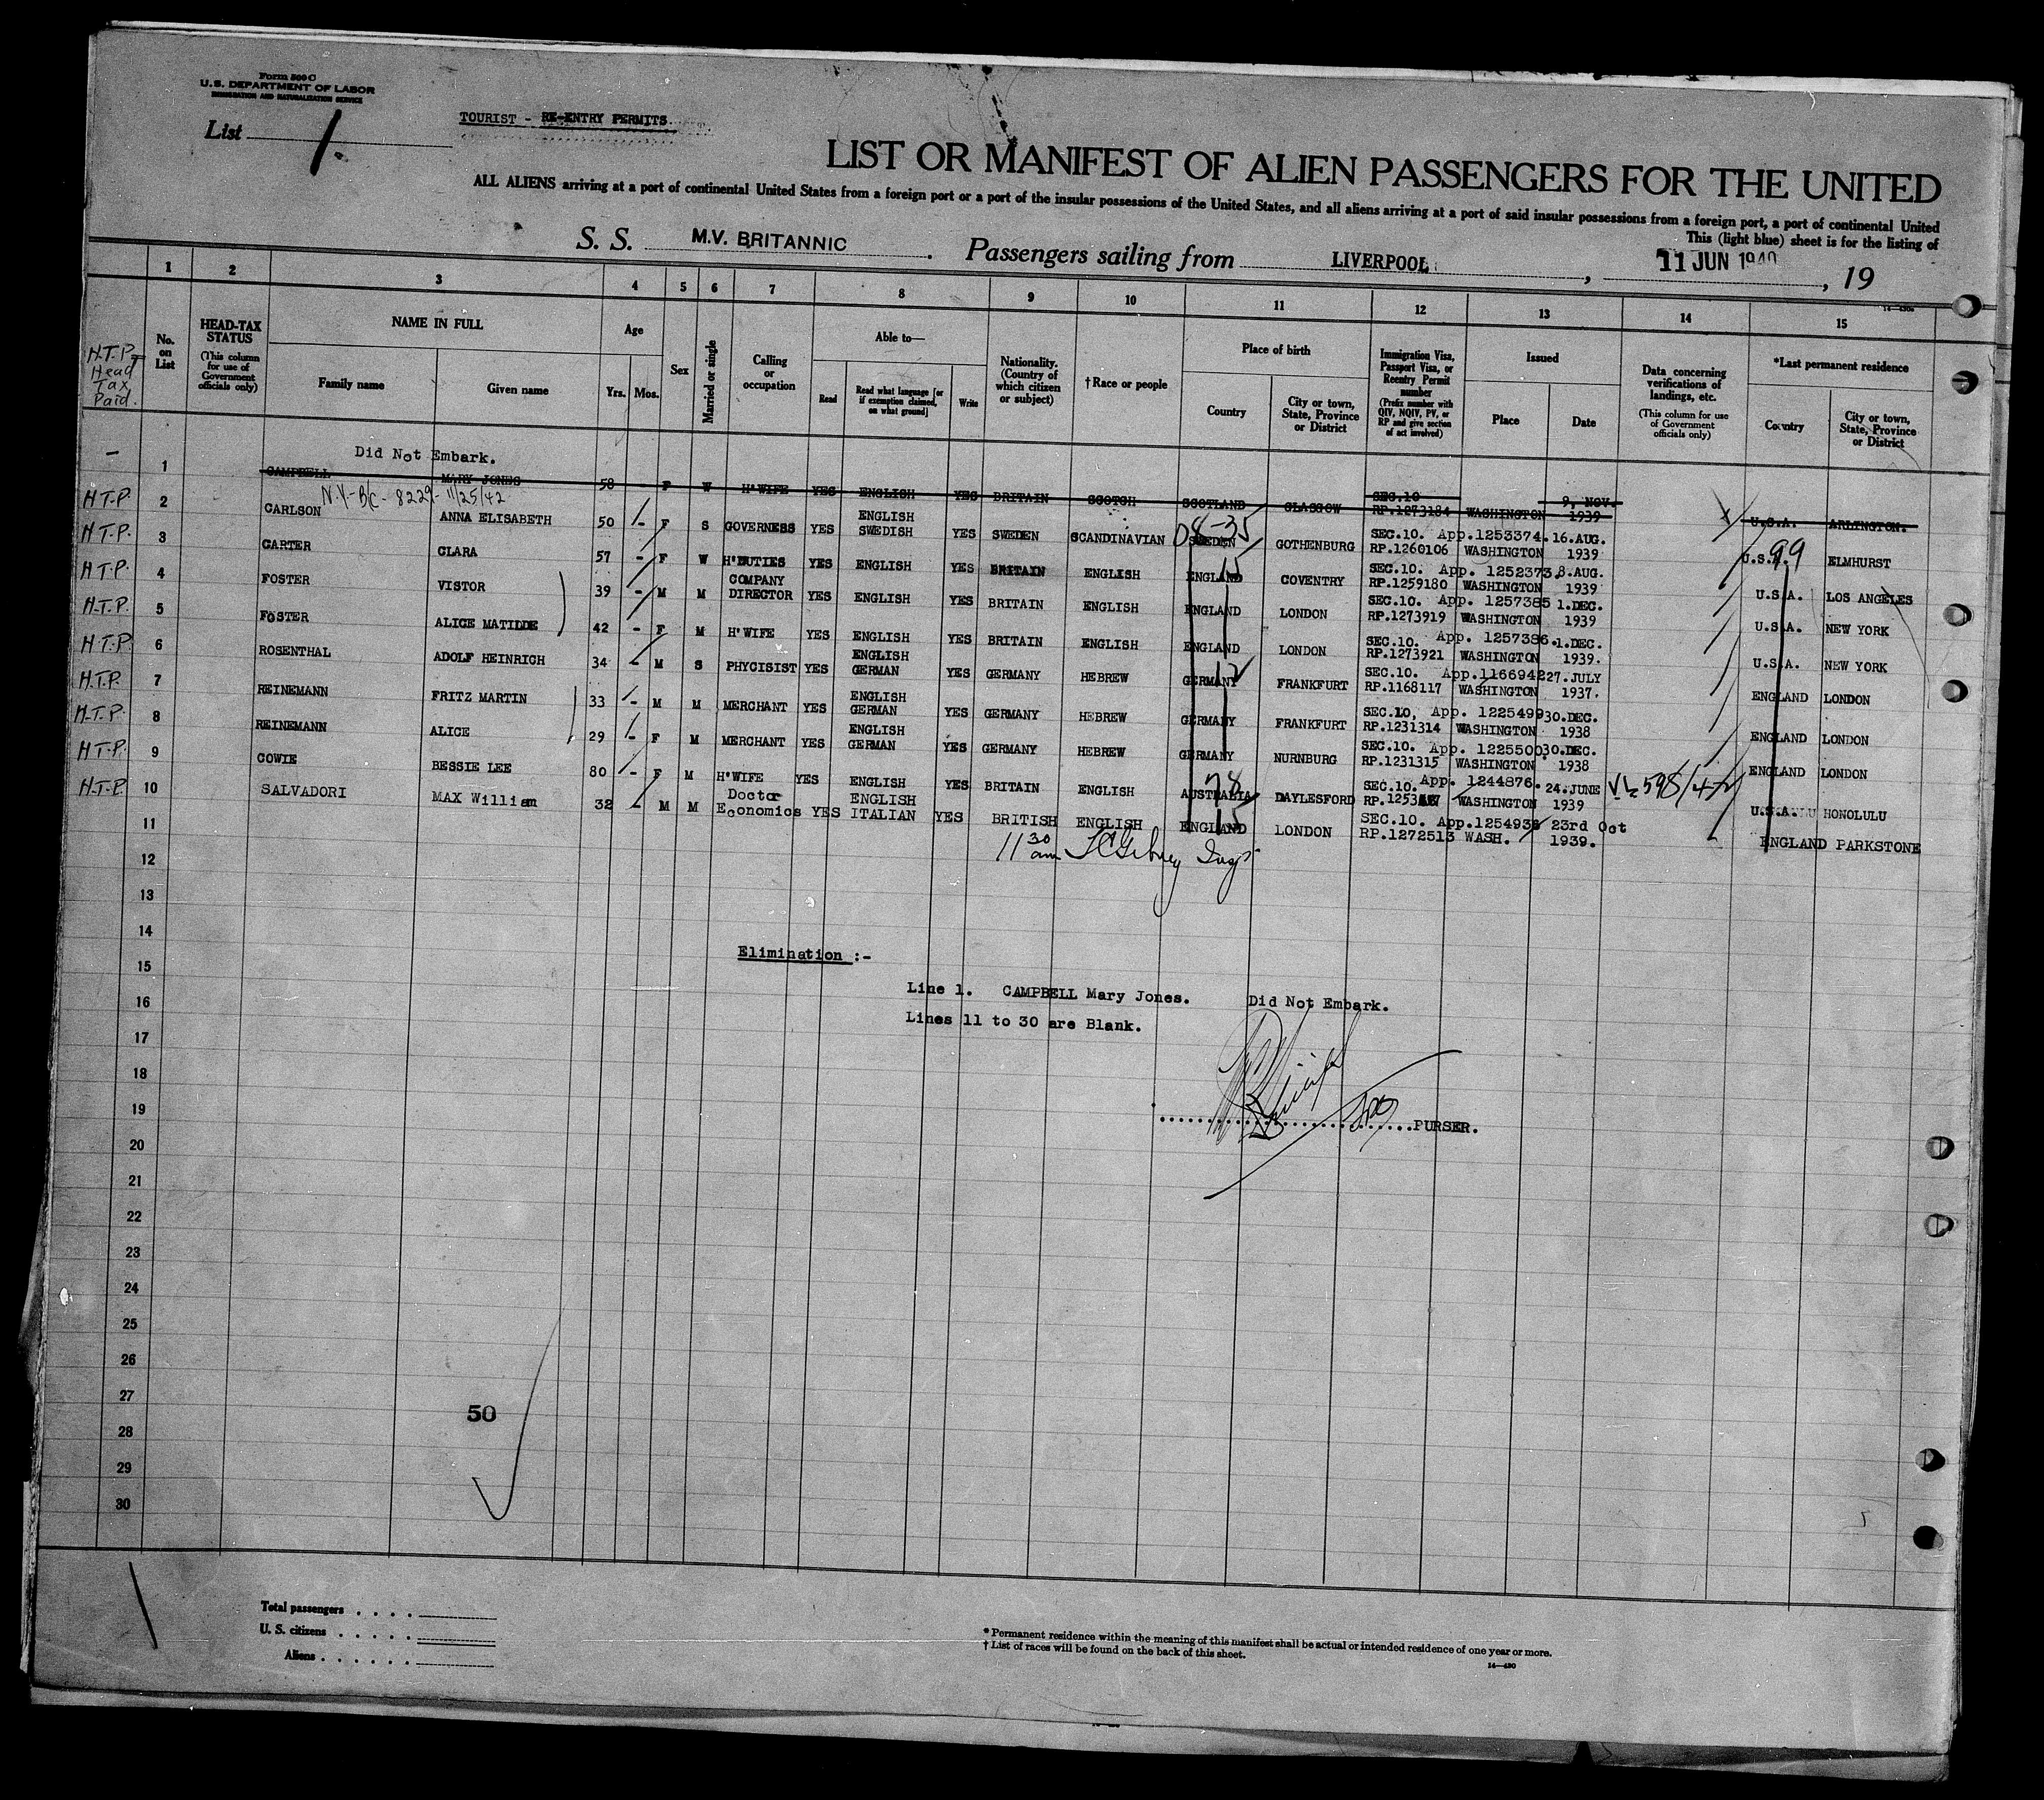 Form 500 C
U. S. DEPARTMENT OF LABOR
IMMIGRATION AND NATURALIZATION SERVICE
List 1.
TOURIST - RE-ENTRY PERMITS
LIST OR MANIFEST OF ALIEN PASSENGERS FOR THE UNITED
ALL ALIENS arriving at a port of continental United States from a foreign port or a port of the insular possessions of the United States, and all aliens arriving at a port of said insular possessions from a foreign port, a port of continental United
This (light blue) sheet is for the listing of
S. S. M.V. BRITANNIC. Passengers sailing from LIVERPOOL, 11 JUN 1940, 19
1 2 3 4 5 6 7 8 9 10 11 12 13 14 15
H.T.P. Head Tax Paid.
No. on List
HEAD-TAX STATUS (This column for use of Government officials only)
NAME IN FULL
Family name Given name
Age Yrs. Mos.
Sex
Married or single
Calling or occupation
Able to—
Read Read what language [or if exemption claimed, on what ground] Write
Nationality. (Country of which citizen or subject)
† Race or people
Place of birth
Country City or town, State, Province or District
Immigration Visa, Passport Visa, or Reentry Permit number (Prefix number with QIV, NQIV, PV, or RP and give section of act involved)
Issued
Place Date
Data concerning verifications of landings, etc. (This column for use of Government officials only)
*Last permanent residence
Country City or town, State, Province or District
14—430a
Did Not Embark.
- 1 CAMPBELL MARY JONES 58 - F W H'WIFE YES ENGLISH YES BRITAIN SCOTCH SCOTLAND GLASGOW SEC.10 RP.1273184 WASHINGTON 9, NOV. 1939 x U.S.A. ARLINGTON.
N.Y-B/C- 8229- 11/25/42
H T-P. 2 CARLSON ANNA ELISABETH 50 - F S GOVERNESS YES ENGLISH SWEDISH YES SWEDEN SCANDINAVIAN SWEDEN GOTHENBURG SEC.10. App.1253374. RP.1260106 WASHINGTON 16.AUG. 1939 U.S.A. ELMHURST
08-35 99
H T-P. 3 CARTER CLARA 57 - F W H'DUTIES YES ENGLISH YES BRITAIN ENGLISH ENGLAND COVENTRY SEC.10. App. 1252373. RP.1259180 WASHINGTON 8.AUG. 1939 U.S.A. LOS ANGELES
15
H T-P. 4 FOSTER VISTOR 39 - M M COMPANY DIRECTOR YES ENGLISH YES BRITAIN ENGLISH ENGLAND LONDON SEC.10. App. 1257385 RP.1273919 WASHINGTON 1.DEC. 1939 U.S.A. NEW YORK
H T-P. 5 FOSTER ALICE MATILDE 42 - F M H'WIFE YES ENGLISH YES BRITAIN ENGLISH ENGLAND LONDON SEC.10. App. 1257386. RP.1273921 WASHINGTON 1.DEC. 1939. U.S.A. NEW YORK
H T-P. 6 ROSENTHAL ADOLF HEINRICH 34 - M S PHYCISIST YES ENGLISH GERMAN YES GERMANY HEBREW GERMANY FRANKFURT SEC.10. App.1166942 RP.1168117 WASHINGTON 27.JULY 1937. ENGLAND LONDON
12
H.T.P. 7 REINEMANN FRITZ MARTIN 33 - M M MERCHANT YES ENGLISH GERMAN YES GERMANY HEBREW GERMANY FRANKFURT SEC.10, App. 1225499 RP.1231314 WASHINGTON 30.DEC. 1938 ENGLAND LONDON
H-T-P. 8 REINEMANN ALICE 29 - F M MERCHANT YES ENGLISH GERMAN YES GERMANY HEBREW GERMANY NURNBURG SEC.10. App. 1225500 RP.1231315 WASHINGTON 30.DEC. 1938 ENGLAND LONDON
H T-P. 9 COWIE BESSIE LEE 80 - F M H'WIFE YES ENGLISH YES BRITAIN ENGLISH AUSTRALIA DAYLESFORD SEC.10. App. 1244876. WASHINGTON 24.JUNE 1939 U.S.A. HONOLULU
78
H-T-P. 10 SALVADORI MAX William 32 - M M Doctor Economics YES ENGLISH ITALIAN YES BRITISH ENGLISH ENGLAND LONDON SEC.10. RP.1272513 WASH. 23rd Oct 1939. ENGLAND PARKSTONE
15
11
11 30 am
12
13
14
Elimination :-
15
Line 1. CAMPBELL Mary Jones. Did Not Embark.
16
Lines 11 to 30 are Blank.
17
18
19
PURSER.
20
21
22
23
24
25
26
27
50
28
29
30
Total passengers
U. S. citizens
Aliens
* Permanent residence within the meaning of this manifest shall be actual or intended residence of one year or more.
† List of races will be found on the back of this sheet.
14—430